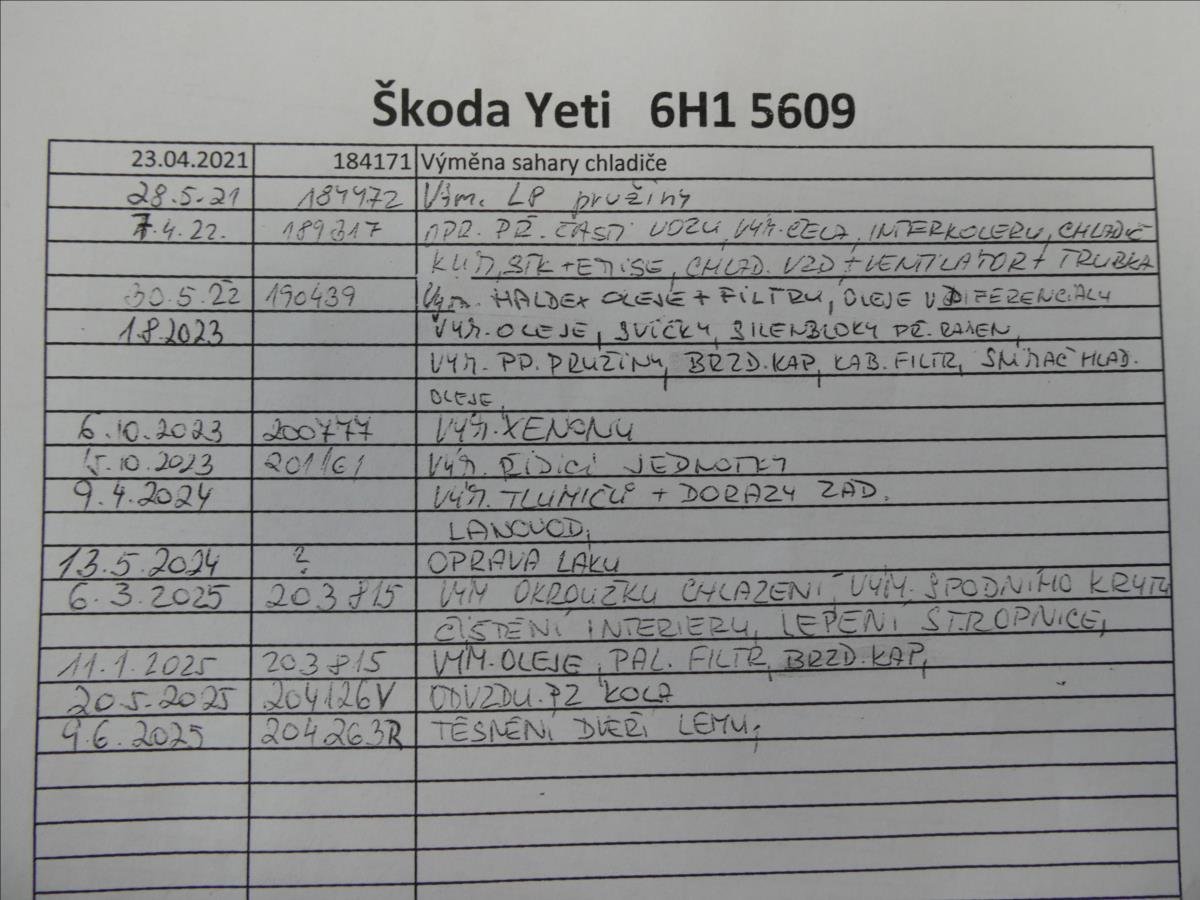 Škoda Yeti 6H1 5609
23.04.2021 184171 Výměna sahary chladiče
28.5.21 184472 Vým. LP pružiny
7.4.22. 189317 OPR. PŘ. ČÁSTI VOZU, VÝM. ČELA, INTERKOLERU, CHLADIČ
KLIM, STK + EMISE, CHLAD. VZD + VENTILATOR + TRUBKA
30.5.22 190439 Vým. HALDEX OLEJE + FILTRU, OLEJE V DIFERENCIÁLY
1.8.2023 VÝM. OLEJE, SVÍČKY, SILENBLOKY PŘ. RAMEN,
VÝM. PP. PRUŽINY, BRZD. KAP, KAB. FILTR, SNÍMAČ HLAD.
OLEJE,
6.10.2023 200777 VÝM. XENONU
15.10.2023 201161 VÝM. ŘÍDÍCÍ JEDNOTKY
9.4.2024 VÝM. TLUMIČŮ + DORAZY ZAD.
LANOVOD,
13.5.2024 ? OPRAVA LAKU
6.3.2025 203815 VÝM OKROUŽKU CHLAZENÍ, VÝM. SPODNÍHO KRYTU
ČIŠTĚNÍ INTERIERU, LEPENÍ STROPNICE,
11.1.2025 203815 VÝM. OLEJE, PAL. FILTR, BRZD. KAP,
20.5.2025 204126V ODVZDU. PZ KOLA
9.6.2025 204263R TĚSNĚNÍ DVEŘÍ LEMU,